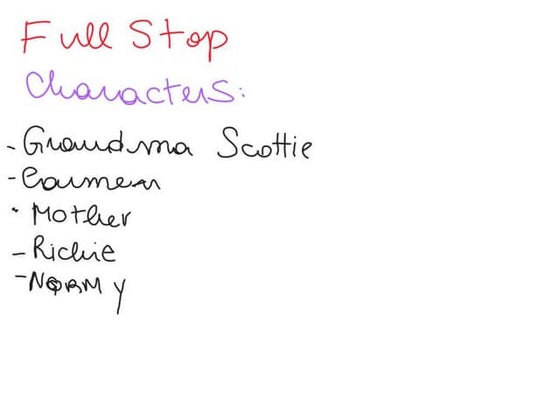 Full Stop
Characters:
- Grandma Scottie
- Carmen
- Mother
- Richie
- NORMY